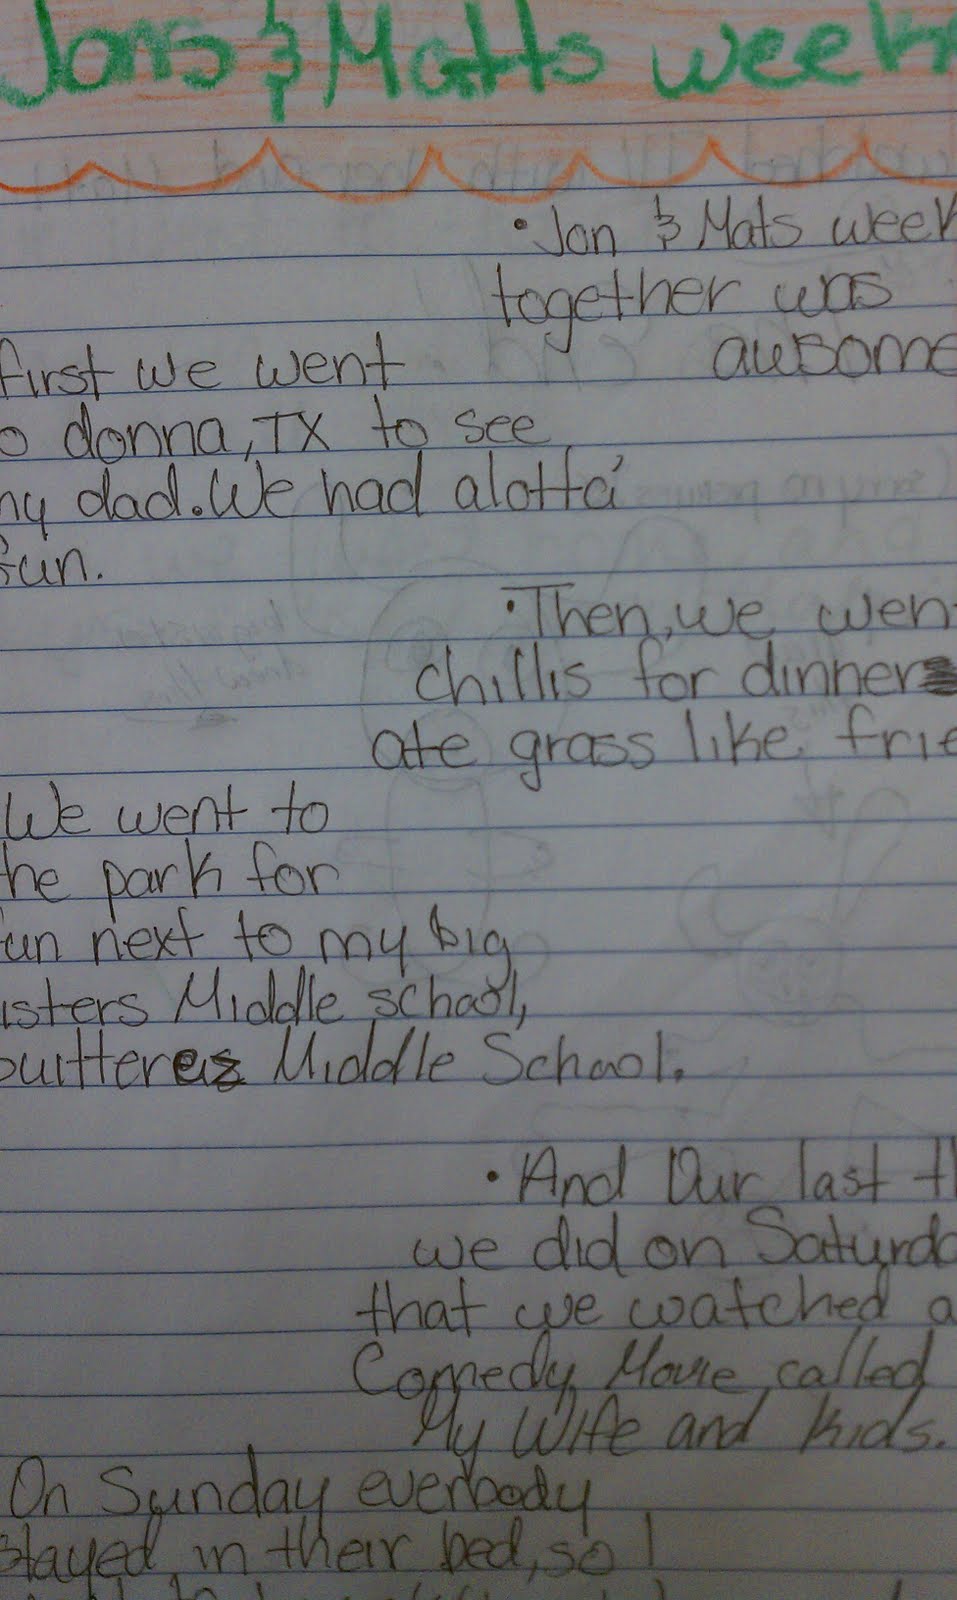 Jons & Matts week
• Jon & Mats week
together was
awsome
first we went
o donna, TX to see
my dad. We had alotta'
fun.
• Then, we went
chillis for dinner
ate grass like frie
We went to
the park for
fun next to my big
isters Middle school,
ouitteres Middle School.
• And Our last th
we did on Saturda
that we watched a
Comedy Movie called
My Wife and Kids.
On Sunday everbody
stayed in their bed, so I